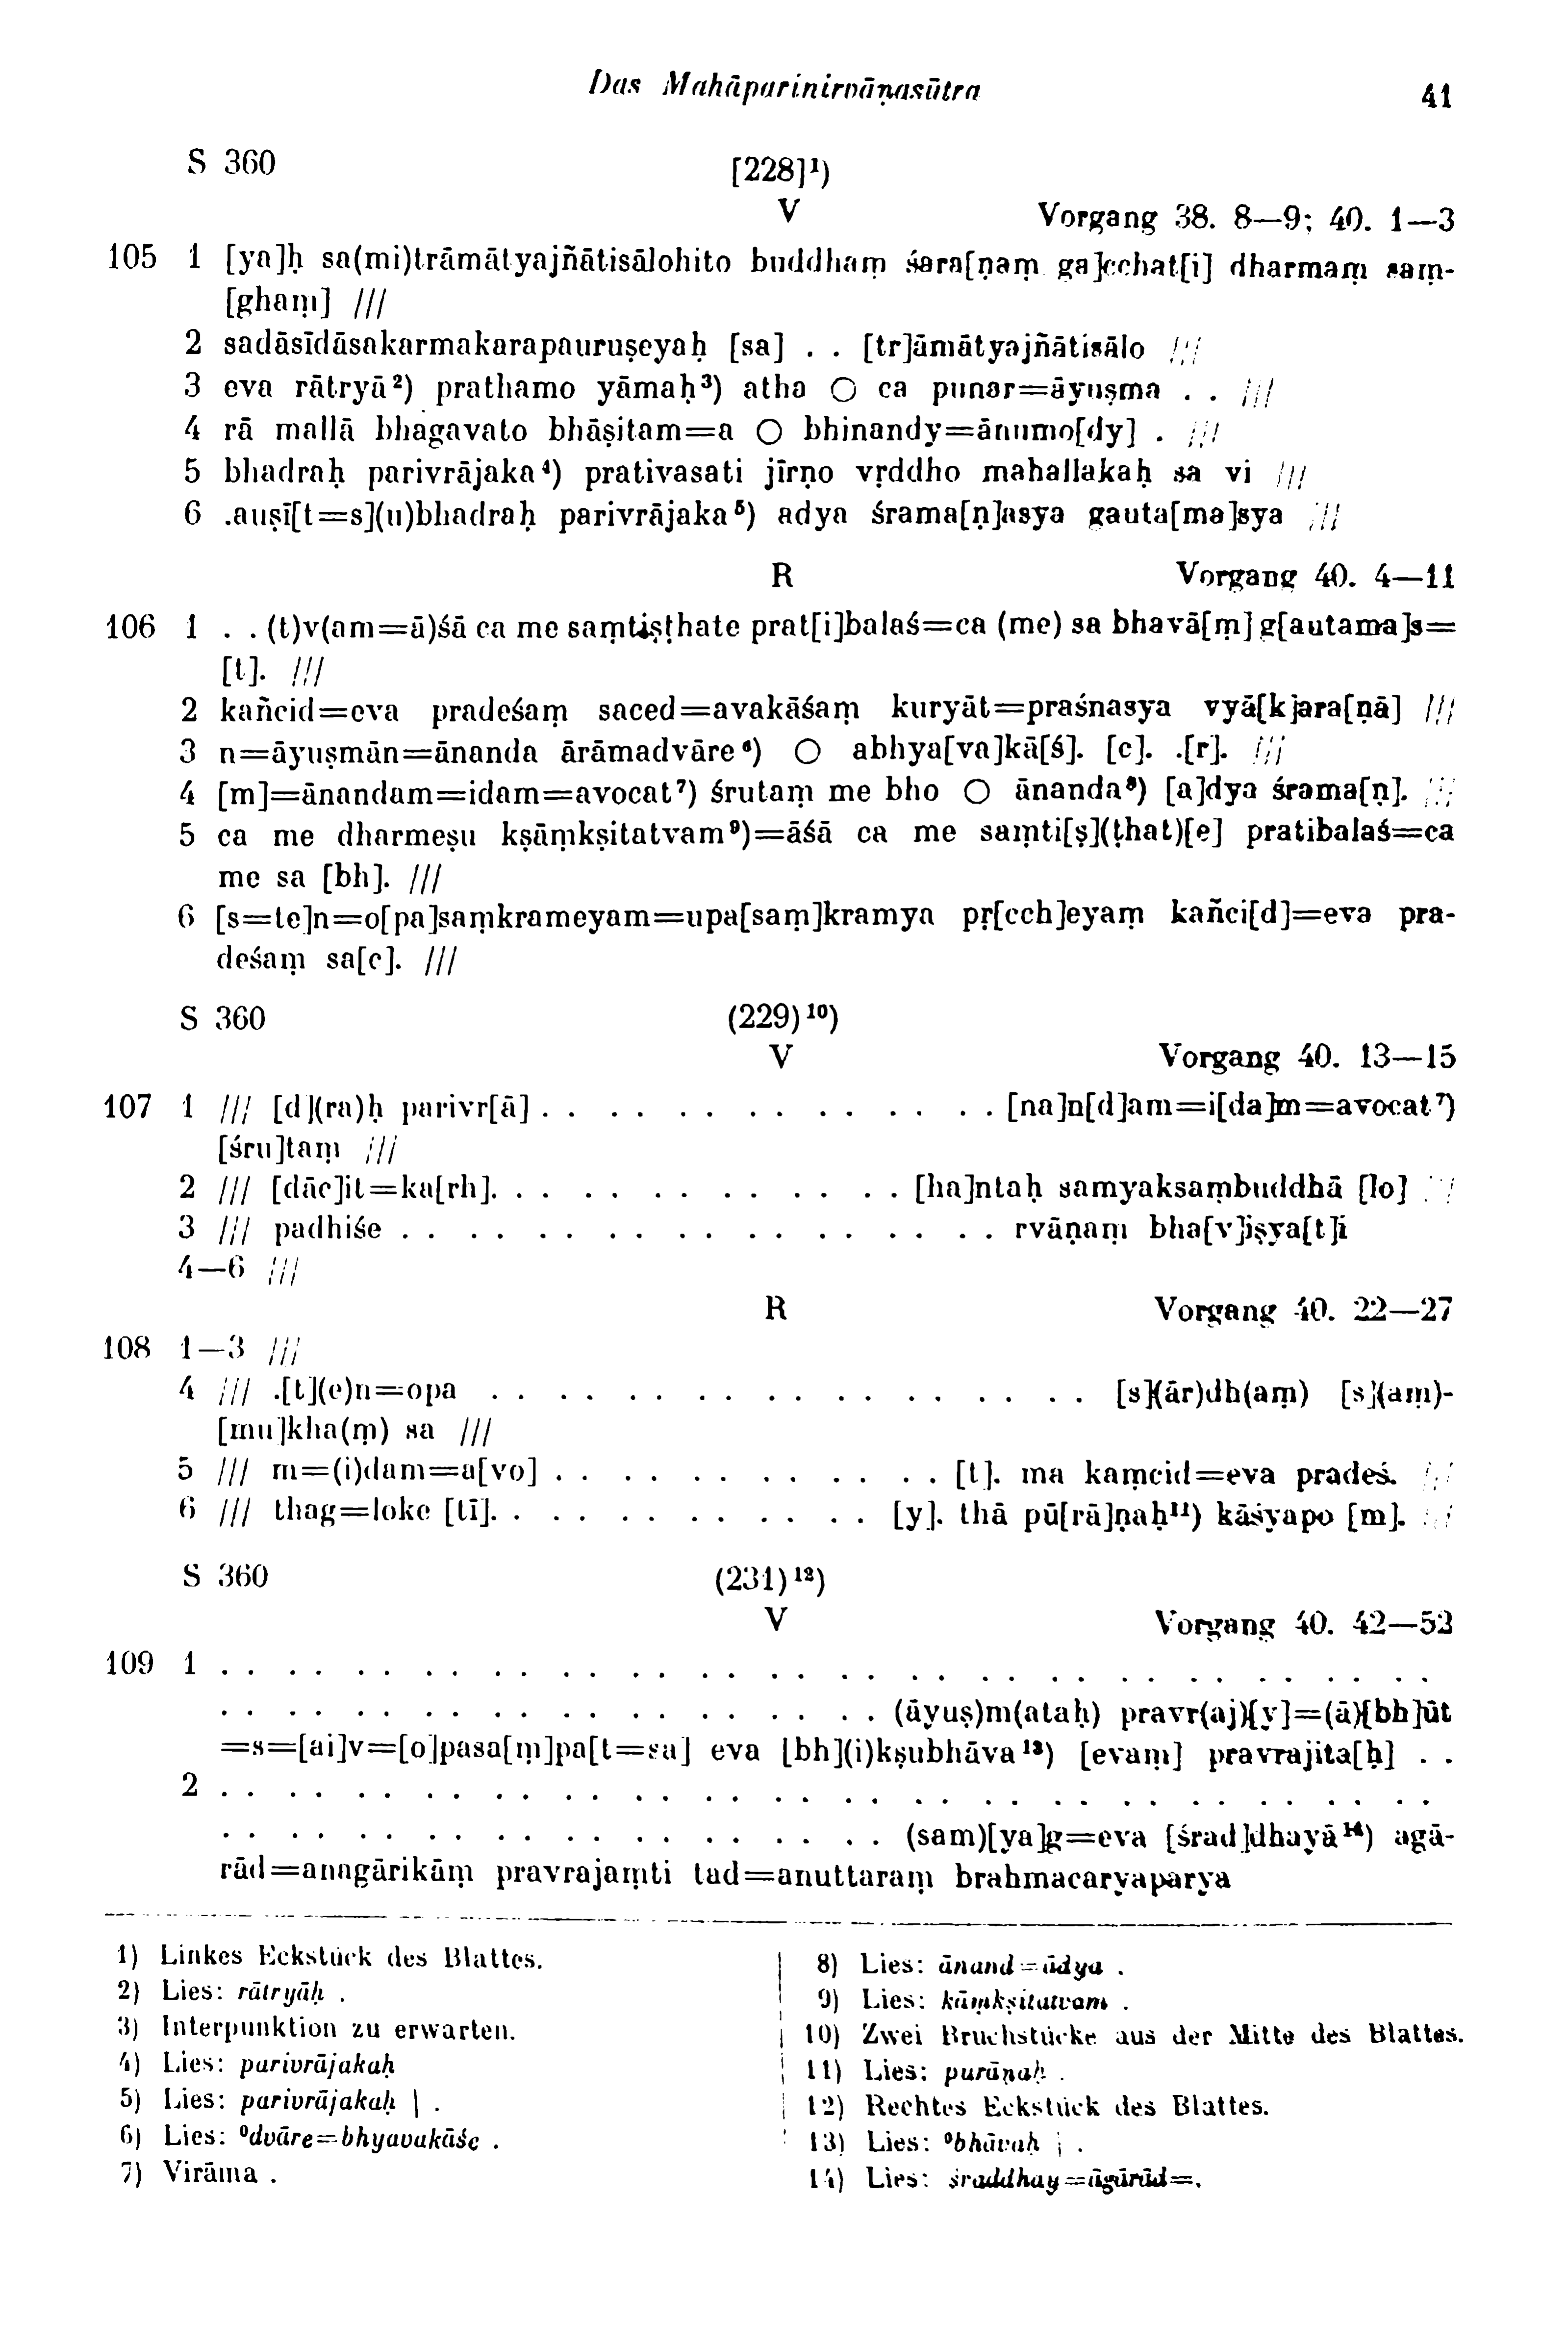 Das Mahāparinirvāṇasūtra 41
S 360 [228]¹)
V Vorgang 38. 8—9; 40. 1—3
105 1 [ya]ḥ sa(mi)trāmātyajñātisālohito buddhaṃ śara[ṇaṃ ga]cchat[i] dharmaṃ saṃ-
[ghaṃ] ///
2 sadāsīdāsakarmakarapauruṣeyaḥ [sa] . . [tr]āmātyajñātisālo ///
3 eva rātryā²) prathamo yāmaḥ³) atha ○ ca punar=āyuṣma . . ///
4 rā mallā bhagavato bhāṣitam=a ○ bhinandy=ānumo[dy] . ///
5 bhadraḥ parivrājaka⁴) prativasati jīrṇo vṛddho mahallakaḥ sa vi ///
6 .auṣī[t=s](u)bhadraḥ parivrājaka⁵) adya śrama[ṇ]asya gauta[ma]sya ///
R Vorgang 40. 4—11
106 1 . . (t)v(am=ā)śā ca me saṃtiṣṭhate prat[i]balaś=ca (me) sa bhavā[ṃ] g[autama]s=
[t]. ///
2 kañcid=eva pradeśaṃ saced=avakāśaṃ kuryāt=praśnasya vyā[k]ara[ṇā] ///
3 n=āyuṣmān=ānanda ārāmadvāre⁶) ○ abhya[va]kā[ś]. [c]. .[r]. ///
4 [m]=ānandam=idam=avocat⁷) śrutaṃ me bho ○ ānanda⁸) [a]dya śrama[ṇ]. ///
5 ca me dharmeṣu kṣāṃkṣitatvam⁹)=āśā ca me saṃti[ṣ](ṭhat)[e] pratibalaś=ca
me sa [bh]. ///
6 [s=te]n=o[pa]saṃkrameyam=upa[saṃ]kramya pṛ[cch]eyaṃ kañci[d]=eva pra-
deśaṃ sa[c]. ///
S 360 (229)¹⁰)
V Vorgang 40. 13—15
107 1 /// [d](ra)ḥ parivr[ā] . . . . . . . . . . . . . . [na]n[d]am=i[da]m=avocat⁷)
[śru]taṃ ///
2 /// [dāc]it=ka[rh]. . . . . . . . . . . . . [ha]ntaḥ samyaksaṃbuddhā [lo] ///
3 /// padhiśe . . . . . . . . . . . . . . . . . . rvāṇaṃ bha[v]iṣya[t]i
4—6 ///
R Vorgang 40. 22—27
108 1—3 ///
4 /// .[t](e)n=opa . . . . . . . . . . . . . . . . . . [s](ār)dh(aṃ) [s](aṃ)-
[mu]kha(ṃ) sa ///
5 /// m=(i)dam=a[vo] . . . . . . . . . . . . [t]. ma kaṃcid=eva pradeś. ///
6 /// thag=loke [tī]. . . . . . . . . . . . [y]. thā pū[rā]ṇaḥ¹¹) kāśyapo [m]. ///
S 360 (231)¹²)
V Vorgang 40. 42—52
109 1 . . . . . . . . . . . . . . . . . . . . . . . . . . . . . . . . . . . .
. . . . . . . . . . . . . . . . . . . . (āyuṣ)m(ataḥ) pravr(aj)[y]=(ā)[bh]ūt
=s=[ai]v=[o]pasa[ṃ]pa[t=sa] eva [bh](i)kṣubhāva¹³) [evaṃ] pravrajita[ḥ] . .
2 . . . . . . . . . . . . . . . . . . . . . . . . . . . . . . . . . . . .
. . . . . . . . . . . . . . . . . . . . (sam)[ya]g=eva [śrad]dhayā¹⁴) agā-
rād=anagārikāṃ pravrajaṃti tad=anuttaraṃ brahmacaryaparya
1) Linkes Eckstück des Blattes.
2) Lies: rātryāḥ .
3) Interpunktion zu erwarten.
4) Lies: parivrājakaḥ
5) Lies: parivrājakaḥ | .
6) Lies: ⁰dvāre=bhyavakāśe .
7) Virāma .
8) Lies: ānand=ādya .
9) Lies: kāṃkṣitatvam .
10) Zwei Bruchstücke aus der Mitte des Blattes.
11) Lies: purāṇaḥ .
12) Rechtes Eckstück des Blattes.
13) Lies: ⁰bhāvaḥ | .
14) Lies: śraddhay=āgārād=.